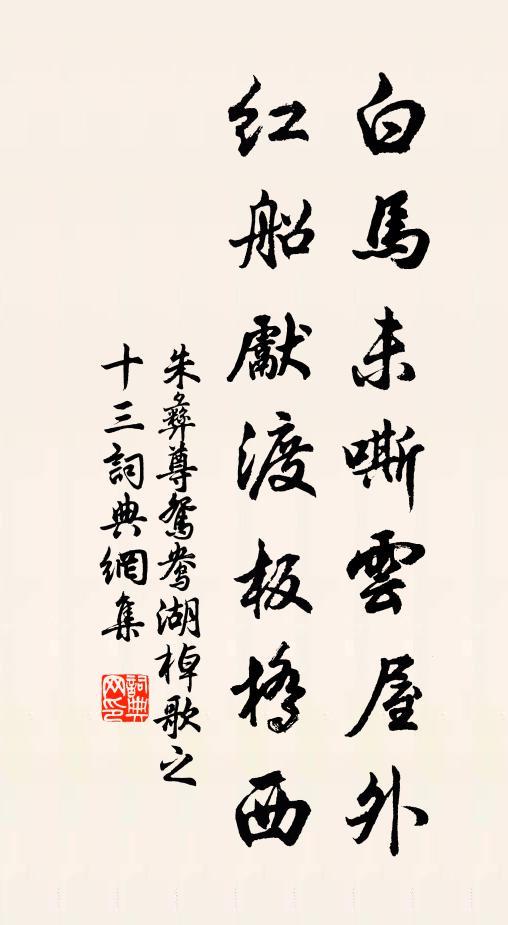 白馬未嘶雲屋外
紅船獻渡板橋西
朱彝尊鴛鴦湖棹歌之
十三詞典網集
詞典网印